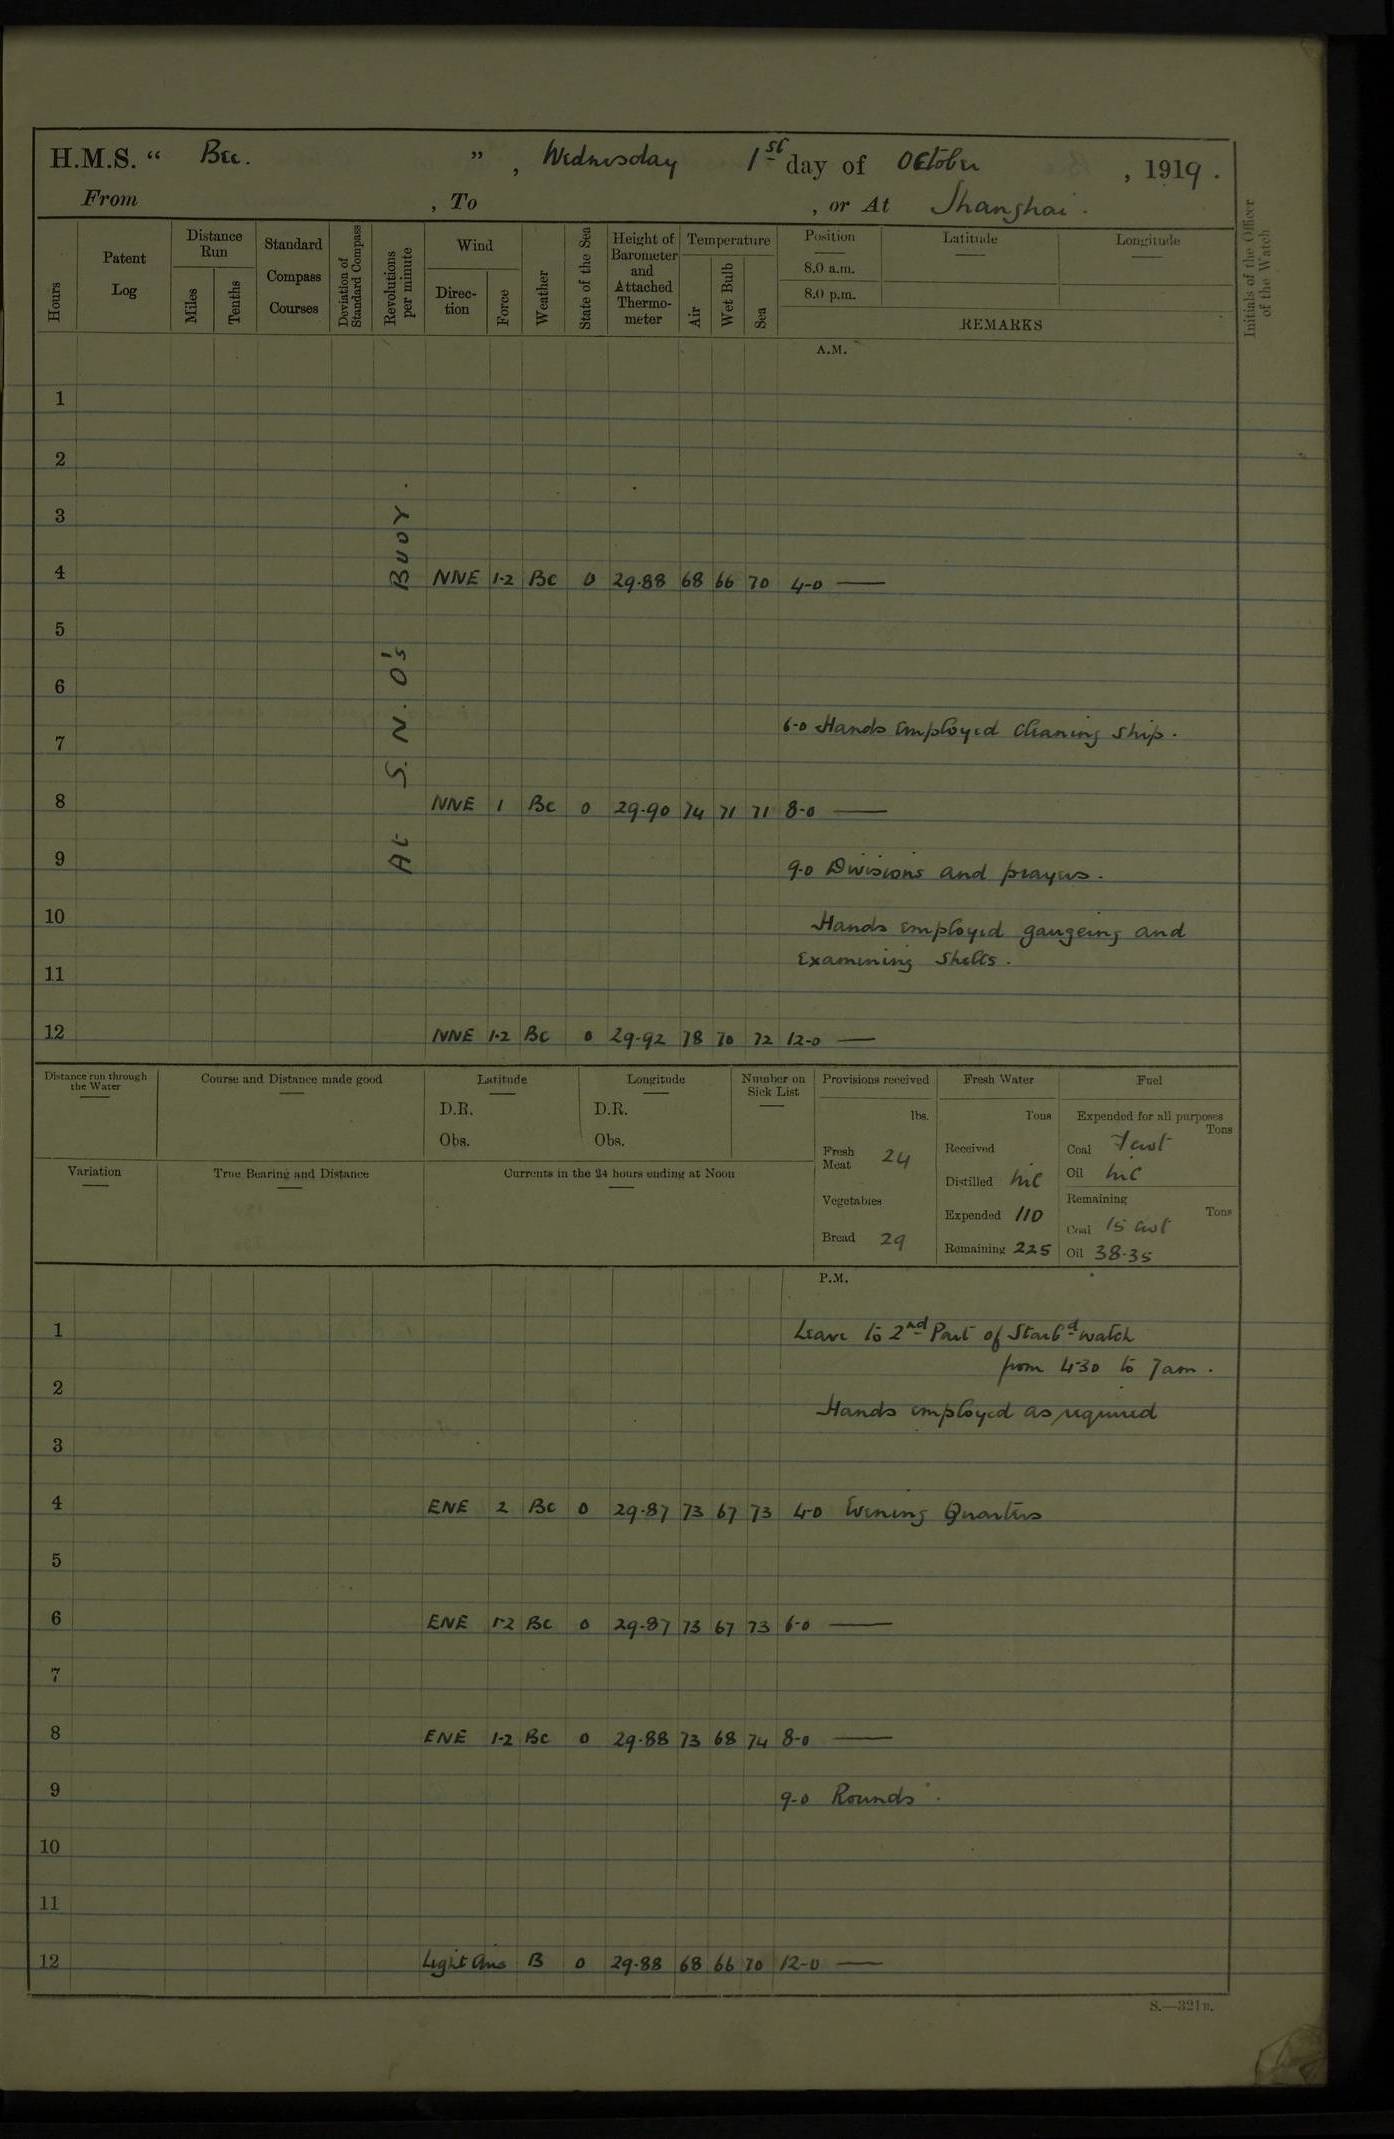 H.M.S. " Bee. " , Wednesday 1st day of October , 1919 .
From , To , or At Shanghai .
Hours
Patent Log
Distance Run
Miles
Tenths
Standard Compass Courses
Deviation of Standard Compass
Revolutions per minute
Wind
Direction
Force
Weather
State of the Sea
Height of Barometer and Attached Thermometer
Temperature
Air
Wet Bulb
Sea
Position
8.0 a.m.
8.0 p.m.
Latitude
Longitude
REMARKS
Initials of the Officer of the Watch
A.M.
At S.N.O's Buoy .
1
2
3
4 NNE 1-2 BC 0 29.88 68 66 70 4-0 —
5
6
6-0 Hands employed cleaning ship .
7
8 NNE 1 BC 0 29.90 74 71 71 8-0 —
9 9-0 Divisions and prayers .
10 Hands employed gaugeing and
Examining Shells .
11
12 NNE 1-2 BC 0 29.92 78 70 72 12-0 —
Distance run through the Water
Course and Distance made good
Latitude
D.R.
Obs.
Longitude
D.R.
Obs.
Number on Sick List
Provisions received
lbs.
Fresh Meat 24
Vegetables
Bread 29
Fresh Water
Tons
Received
Distilled nil
Expended 110
Remaining 225
Fuel
Expended for all purposes
Tons
Coal 7 cwt
Oil nil
Remaining
Tons
Coal 15 cwt
Oil 38.35
Variation
True Bearing and Distance
Currents in the 24 hours ending at Noon
P.M.
1 Leave to 2nd Part of Starbd watch
from 4-30 to 7am .
2
Hands employed as required
3
4 ENE 2 BC 0 29.87 73 67 73 4-0 Evening Quarters
5
6 ENE 1-2 BC 0 29.87 73 67 73 6-0 —
7
8 ENE 1-2 BC 0 29.88 73 68 74 8-0 —
9 9-0 Rounds .
10
11
12 Light airs B 0 29.88 68 66 70 12-0 —
S.—321B.